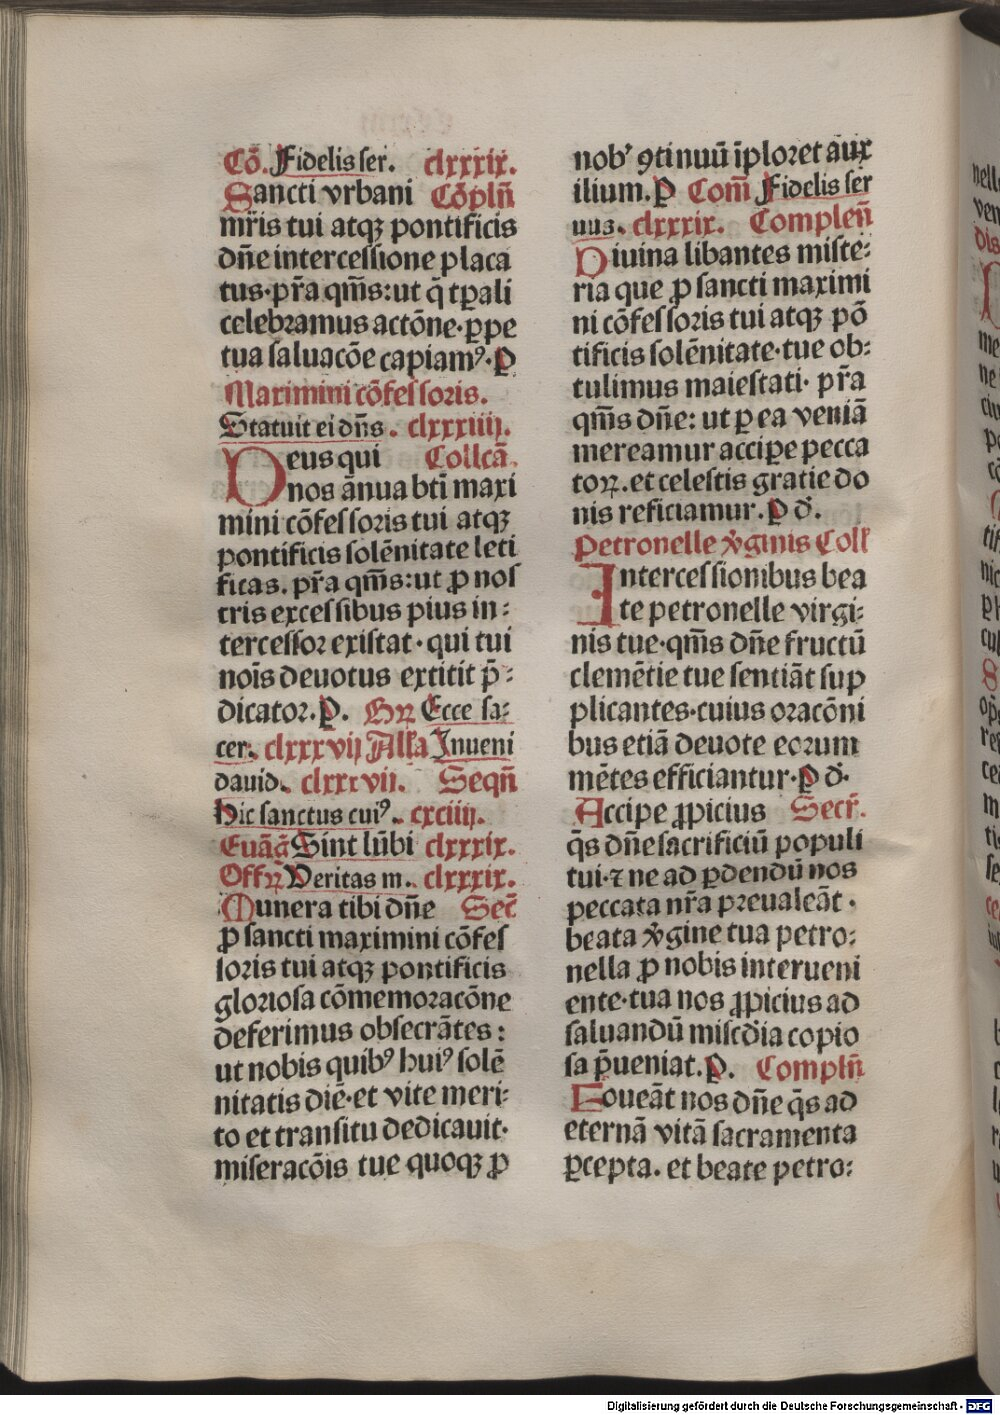 Cō. Fidelis ſer. clxxxix.
Sancti vrbani Cōpln̄
mr̄is tui atqꝫ pontificis
dn̄e interceſſione placa
tus·pr̄a qm̄s:ut q̄ tꝑali
celebramus actōne·ꝑpe
tua ſaluacōe capiamꝰ·P
Maximini cōfeſſoris.
Statuit ei dn̄s. clxxxiiij.
Deus qui Collcā.
nos ānua bti̅ maxi
mini cōfeſſoris tui atqꝫ
pontificis ſolēnitate leti
ficas. pr̄a qm̄s:ut ꝓ noſ
tris exceſſibus pius in:
terceſſor exiſtat·qui tui
noīs deuotus extitit p̄:
dicator.P. Grꝝ Ecce ſa:
cer. clxxxvij Alla Inueni
dauid. clxxxvii. Seqn̄
Hic ſanctus cuiꝰ. cxciiij.
Euāg̃ Sint lūbi clxxxix.
Offrꝝ Veritas m. clxxxix.
Munera tibi dn̄e Sec̄
ꝓ ſancti maximini cōfeſ
ſoris tui atqꝫ pontificis
glorioſa cōmemoracōne
deferimus obſecrātes:
ut nobis quibꝰ huiꝰ ſolē
nitatis diē·et vite meri:
to et tranſitu dedicauit·
miſeracōis tue quoqꝫ ꝓ
nobꝰ ꝯtinuū īploret aux
ilium.P Com̄ Fidelis ſer
uus. clxxxix. Complen̄
Diuina libantes miſte:
ria que ꝓ ſancti maximi
ni cōfeſſoris tui atqꝫ pō
tificis ſolēnitate·tue ob:
tulimus maieſtati· pr̄a
qm̄s dn̄e: ut ꝑ ea veniā
mereamur acciꝑe pecca
torꝝ.et celeſtis gratie do
nis reficiamur.P d̄.
Petronelle v̄ginis Coll
Interceſſionibus bea
te petronelle virgi:
nis tue·qm̄s dn̄e fructū
clemētie tue ſentiāt ſup
plicantes·cuius oracōni
bus etiā deuote eorum
mētes efficiantur·P d̄·
Accipe ꝓpicius Secr̄.
q̄s dn̄e ſacrificiū populi
tui·⁊ ne ad ꝑdendū nos
peccata nr̄a preualeāt·
beata v̄gine tua petro:
nella ꝓ nobis interueni
ente·tua nos ꝓpicius ad
ſaluandū miſcd̄ia copio
ſa p̄ueniat.P. Compln̄
Foueāt nos dn̄e q̄s ad
eternā vitā ſacramenta
ꝑcepta. et beate petro:
Digitalisierung gefördert durch die Deutsche Forschungsgemeinschaft - DFG